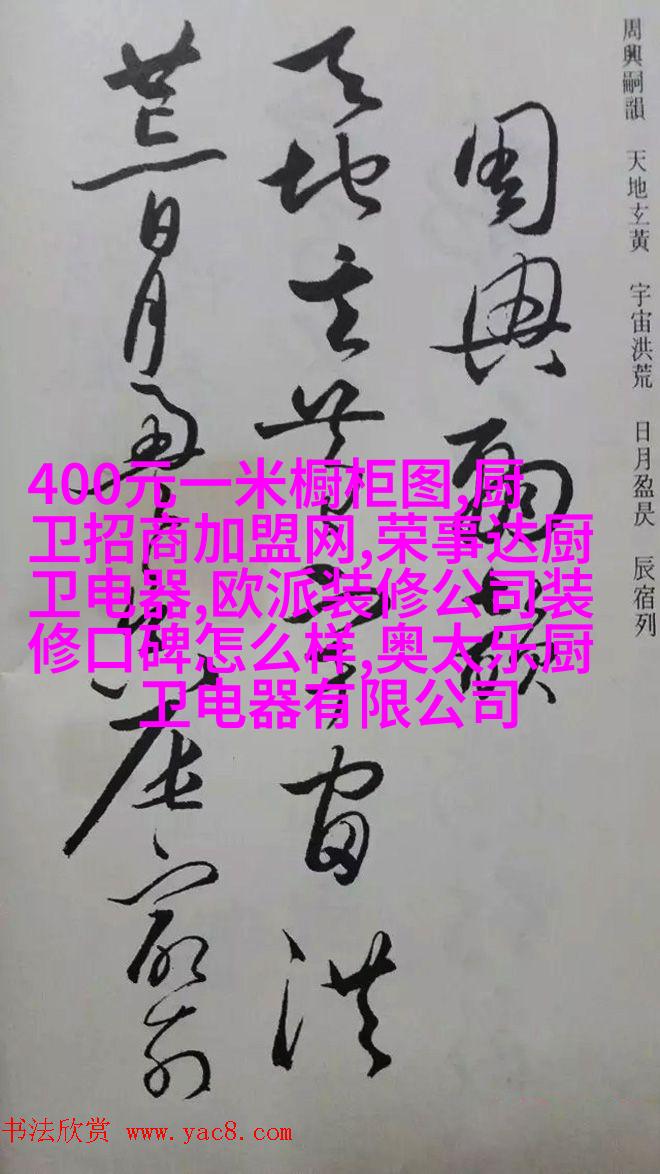 周興嗣韻 天地玄黃 宇宙洪荒 日月盈昃 辰宿列
周興嗣韻
天地玄黃宇宙洪
荒日月盈昃辰宿列
400元一米橱柜图,厨
卫招商加盟网,荣事达厨
卫电器,欧派装修公司装
修口碑怎么样,奥太乐厨
卫电器有限公司
书法欣赏 www.yac8.com